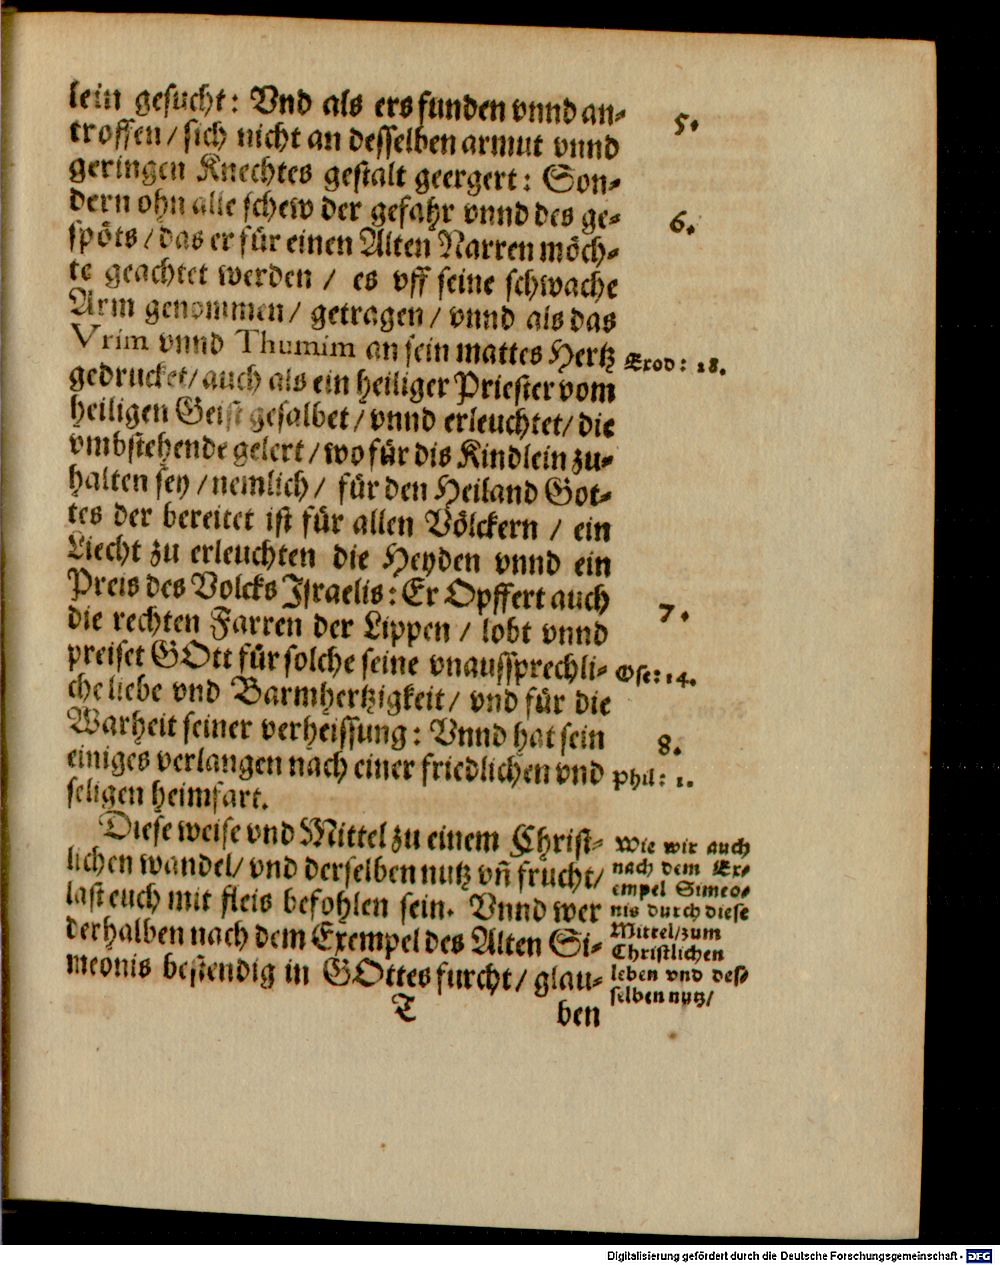 lein gesucht: Vnd als ers funden vnnd an-
troffen/ sich nicht an desselben armut vnnd
geringen Knechtes gestalt geergert: Son-
dern ohn alle schew der gefahr vnnd des ge-
spöts/ das er für einen Alten Narren möch-
te geachtet werden / es vff seine schwache
Arm genommen/ getragen/ vnnd als das
Vrim vnnd Thumim an sein mattes Hertz
gedrucket/ auch als ein heiliger Priester vom
heiligen Geist gesalbet/ vnnd erleuchtet/ die
vmbstehende gelert/ wo für dis Kindlein zu-
halten sey/ nemlich/ für den Heiland Got-
tes der bereitet ist für allen Völckern / ein
Liecht zu erleuchten die Heyden vnnd ein
Preis des Volcks Israelis: Er Opffert auch
die rechten Farren der Lippen/ lobt vnnd
preiset GOtt für solche seine vnaussprechli-
che liebe vnd Barmhertzigkeit/ vnd für die
Warheit seiner verheissung: Vnnd hat sein
einiges verlangen nach einer friedlichen vnd
seligen heimfart.
Diese weise vnd Mittel zu einem Christ-
lichen wandel/ vnd derselben nutz vñ frucht/
last euch mit fleis befohlen sein. Vnnd wer
derhalben nach dem Exempel des Alten Si-
meonis bestendig in GOttes furcht/ glau-
T
ben
5.
6.
Exod: 28.
7.
Ose: 14.
8.
Phil: 1.
Wie wir auch
nach dem Ex-
empel Simeo-
nis durch diese
Mittel/ zum
Christlichen
leben vnd des-
selben nutz/
Digitalisierung gefördert durch die Deutsche Forschungsgemeinschaft - DFG